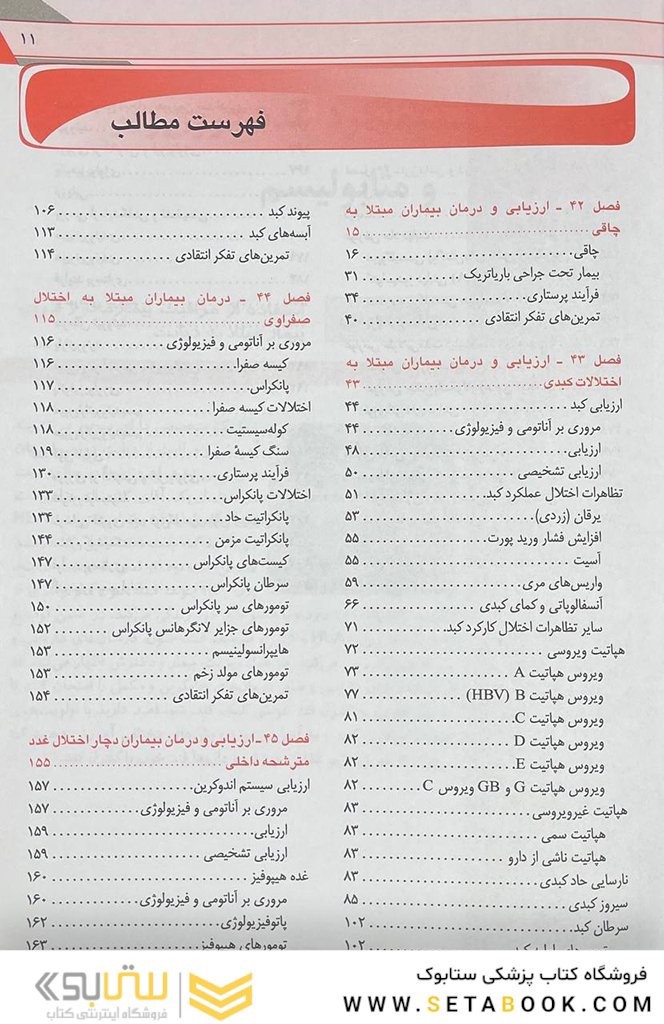 ۱۱
فهرست مطالب
فصل ۴۲ - ارزیابی و درمان بیماران مبتلا به
چاقی ۱۵
چاقی ۱۶
بیمار تحت جراحی باریاتریک ۳۱
فرآیند پرستاری ۳۴
تمرین‌های تفکر انتقادی ۴۰
فصل ۴۳ - ارزیابی و درمان بیماران مبتلا به
اختلالات کبدی ۴۳
ارزیابی کبد ۴۴
مروری بر آناتومی و فیزیولوژی ۴۴
ارزیابی ۴۸
ارزیابی تشخیصی ۵۰
تظاهرات اختلال عملکرد کبد ۵۱
یرقان (زردی) ۵۳
افزایش فشار ورید پورت ۵۵
آسیت ۵۵
واریس‌های مری ۵۹
آنسفالوپاتی و کمای کبدی ۶۶
سایر تظاهرات اختلال کارکرد کبد ۷۱
هپاتیت ویروسی ۷۲
ویروس هپاتیت A ۷۳
ویروس هپاتیت B (HBV) ۷۷
ویروس هپاتیت C ۸۱
ویروس هپاتیت D ۸۲
ویروس هپاتیت E ۸۲
ویروس هپاتیت G و GB ویروس C ۸۲
هپاتیت غیرویروسی ۸۳
هپاتیت سمی ۸۳
هپاتیت ناشی از دارو ۸۳
نارسایی حاد کبدی ۸۳
سیروز کبدی ۸۵
سرطان کبد ۱۰۲
۱۰۲
پیوند کبد ۱۰۶
آبسه‌های کبد ۱۱۳
تمرین‌های تفکر انتقادی ۱۱۴
فصل ۴۴ - درمان بیماران مبتلا به اختلال
صفراوی ۱۱۵
مروری بر آناتومی و فیزیولوژی ۱۱۶
کیسه صفرا ۱۱۶
پانکراس ۱۱۷
اختلالات کیسه صفرا ۱۱۸
کوله‌سیستیت ۱۱۸
سنگ کیسهٔ صفرا ۱۱۹
فرآیند پرستاری ۱۳۰
اختلالات پانکراس ۱۳۳
پانکراتیت حاد ۱۳۴
پانکراتیت مزمن ۱۴۴
کیست‌های پانکراس ۱۴۷
سرطان پانکراس ۱۴۷
تومورهای سر پانکراس ۱۵۰
تومورهای جزایر لانگرهانس پانکراس ۱۵۲
هایپرانسولینیسم ۱۵۳
تومورهای مولد زخم ۱۵۳
تمرین‌های تفکر انتقادی ۱۵۴
فصل ۴۵ - ارزیابی و درمان بیماران دچار اختلال غدد
مترشحه داخلی ۱۵۵
ارزیابی سیستم اندوکرین ۱۵۷
مروری بر آناتومی و فیزیولوژی ۱۵۷
ارزیابی ۱۵۹
ارزیابی تشخیصی ۱۵۹
غده هیپوفیز ۱۶۰
مروری بر آناتومی و فیزیولوژی ۱۶۰
پاتوفیزیولوژی ۱۶۲
تومورهای هیپوفیز ۱۶۳
فروشگاه کتاب پزشکی ستابوک
WWW.SETABOOK.COM
ستابوک
فروشگاه اینترنتی کتاب